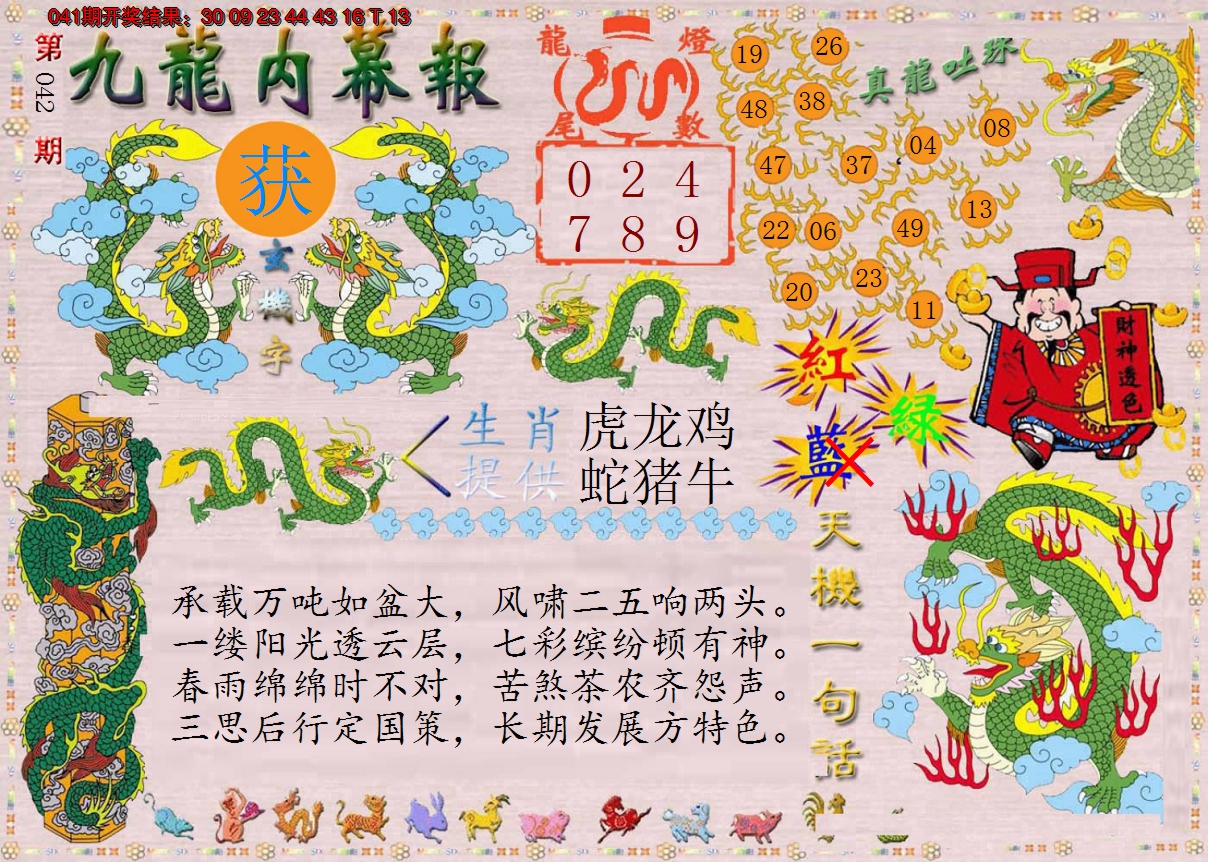 041期开奖结果：30 09 23 44 43 16 T 13
第042期
九龍内幕報
获
玄機字
龍燈尾數
0 2 4
7 8 9
真龍吐珠
19 26
48 38
47 37 04 08
22 06 49 13
20 23 11
財神透色
紅
綠
藍
生肖提供
虎龙鸡
蛇猪牛
天機一句話
承载万吨如盆大，风啸二五响两头。
一缕阳光透云层，七彩缤纷顿有神。
春雨绵绵时不对，苦煞茶农齐怨声。
三思后行定国策，长期发展方特色。